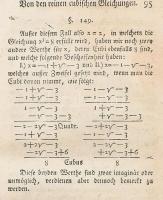 Von den reinen cubischen Gleichungen. 95
§. 149.
Außer diesem Fall also x = 2, in welchem die
Gleichung x³ = 8 erfüllt wird, haben wir noch zwey
andere Werthe für x, deren Cubi ebenfalls 8 sind,
und welche folgender
I) x = -1 + √-3 und II) x = -1 - √-3,
welches außer Zweifel gesetzt wird, wenn man die
Cubi davon nimmt, wie folgt:
-1 + √-3 -1 - √-3
-1 + √-3 -1 - √-3
1 - √-3 1 + √-3
- √-3 - 3 + √-3 - 3
-2 - 2√-3 Quadr. -2 + 2√-3
-1 + √-3 -1 - √-3
2 + 2√-3 2 - 2√-3
-2√-3 + 6 + 2√-3 + 6
8 Cubus 8
Diese beyden Werthe sind zwar imaginär oder
unmöglich, verdienen aber dennoch bemerkt zu
werden.